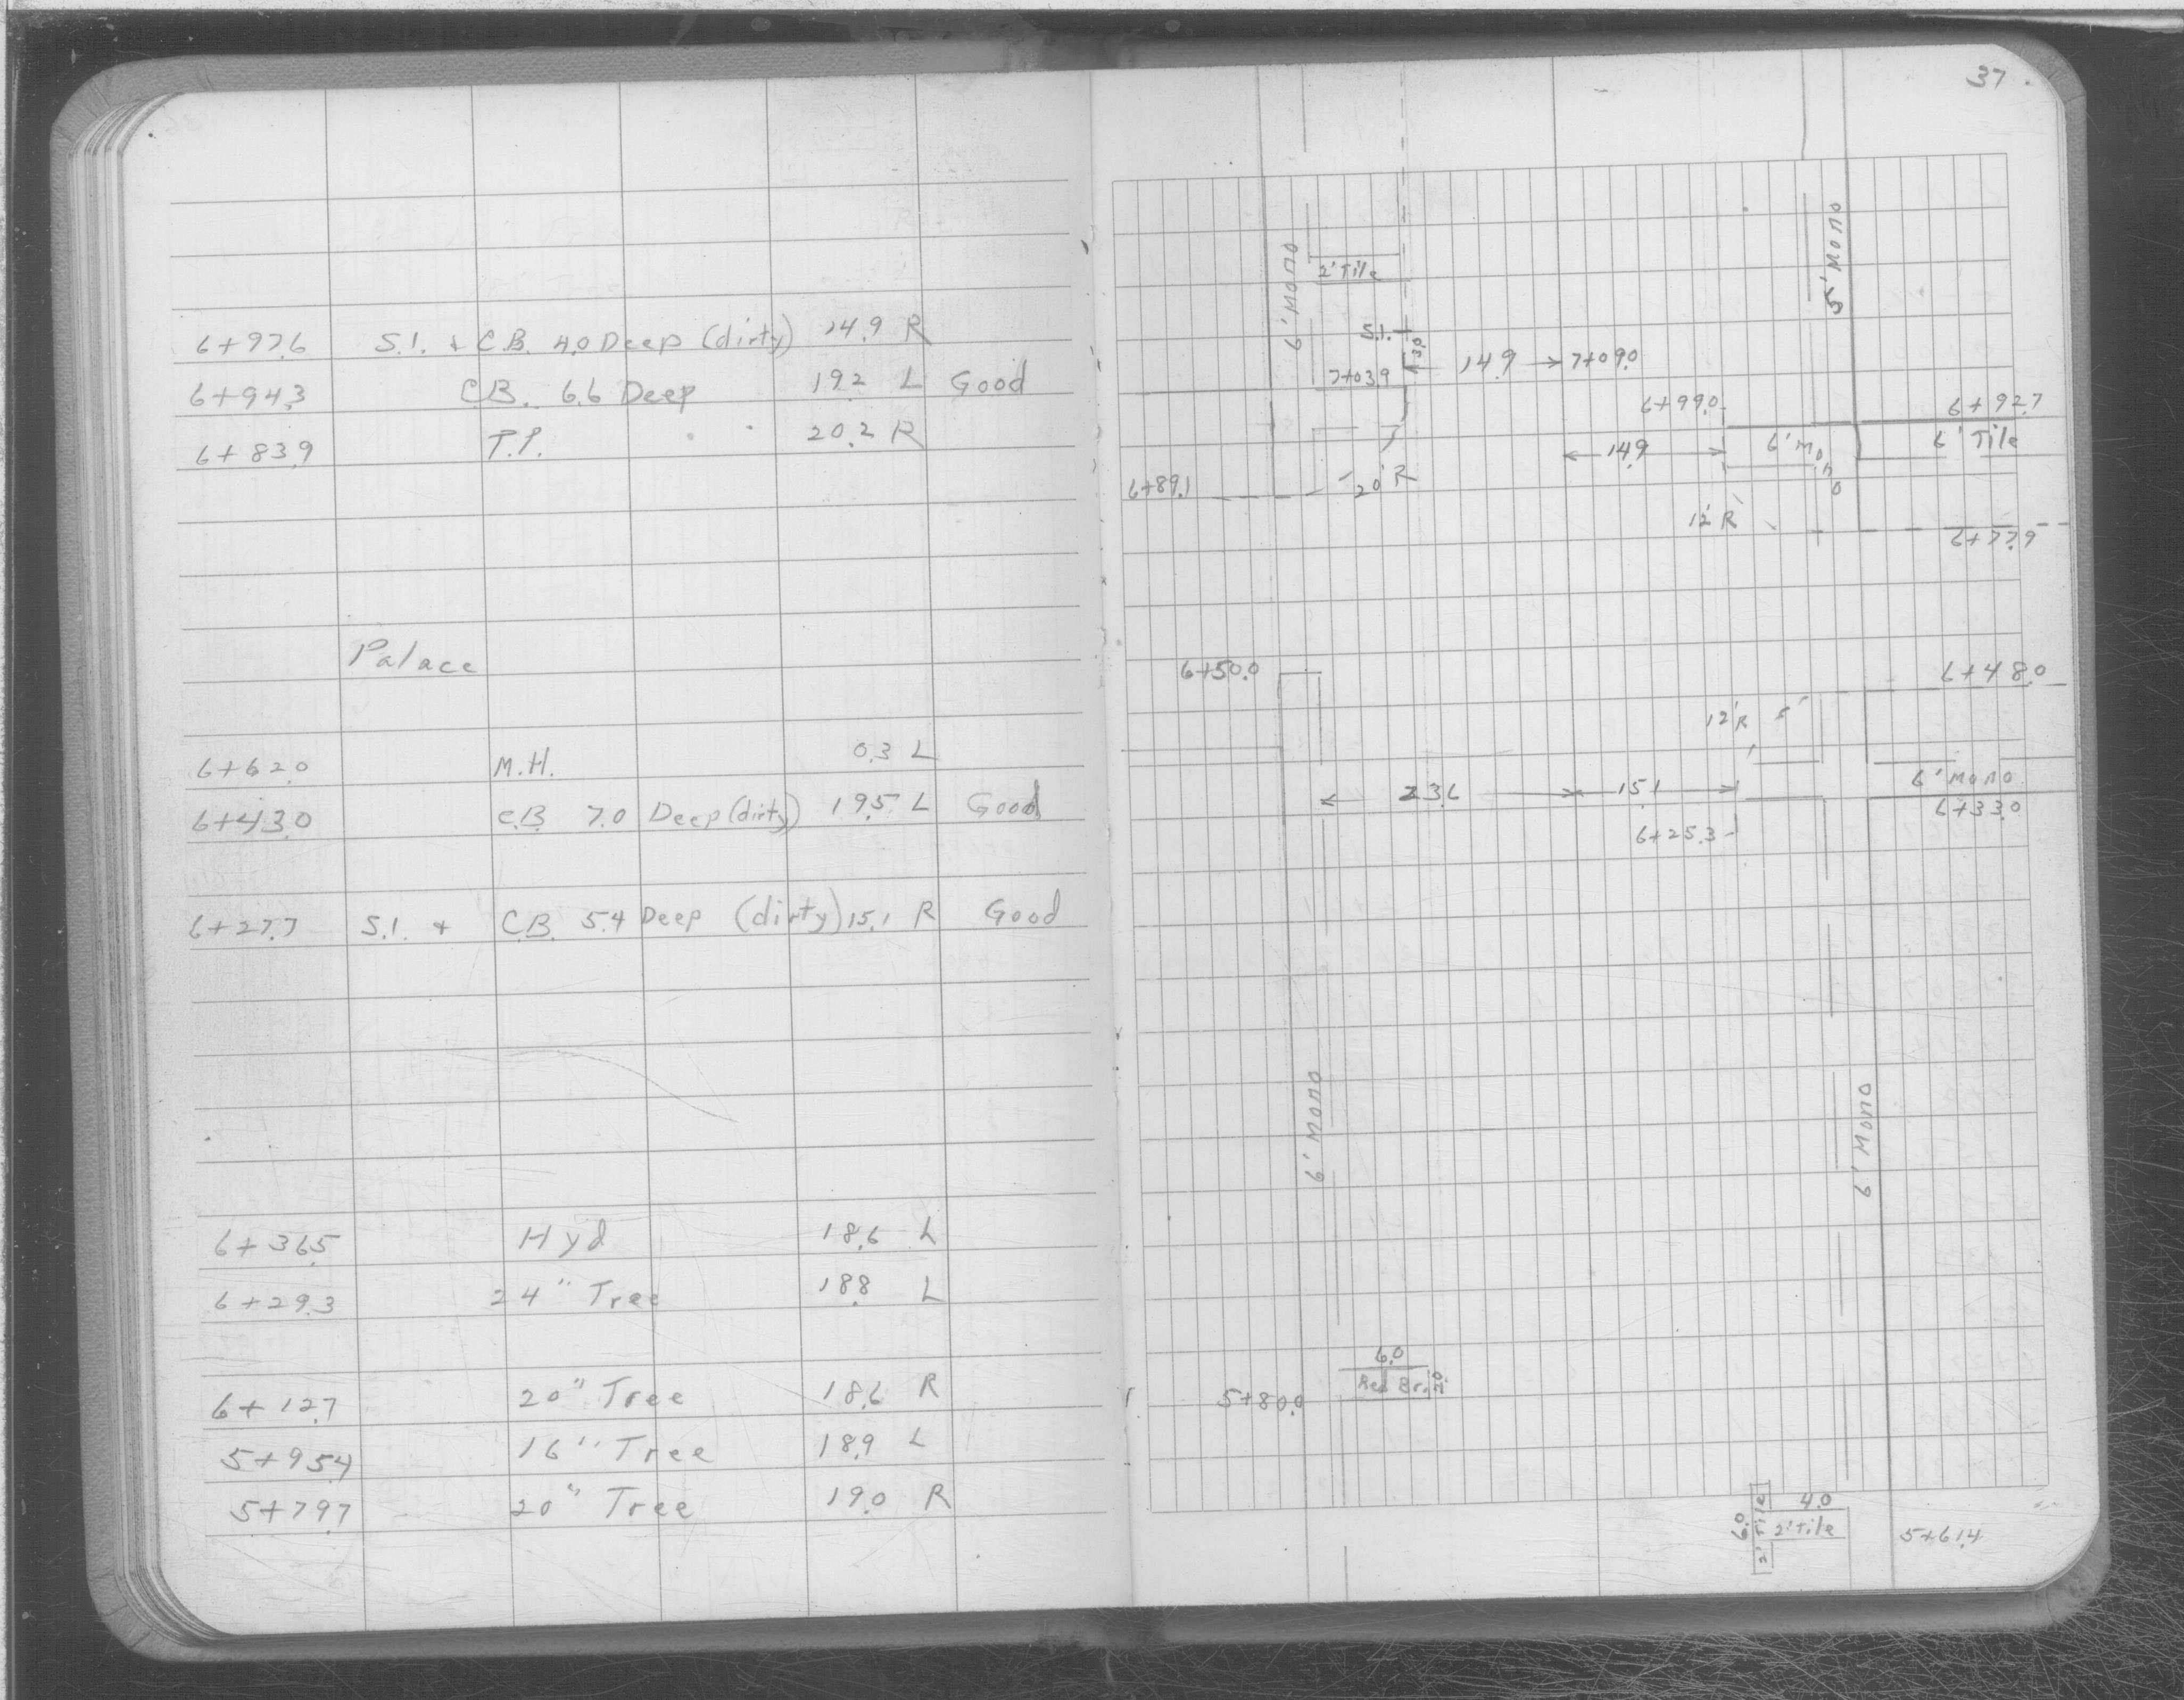 6+97.6 S.I. + C.B. 4.0 Deep (dirty) 14.9 R
6+94.3 C.B. 6.6 Deep 19.2 L Good
6+83.9 T.P. 20.2 R
Palace
6+62.0 M.H. 0.3 L
6+43.0 C.B. 7.0 Deep (dirty) 19.5 L Good
6+27.7 S.I. + C.B. 5.4 Deep (dirty) 15.1 R Good
6+36.5 Hyd 18.6 L
6+29.3 24" Tree 18.8 L
6+12.7 20" Tree 18.6 R
5+95.4 16" Tree 18.9 L
5+79.7 20" Tree 19.0 R
37
6' Mono
2' Tile
5' Mono
S.I.
3.0
7+03.9
14.9
7+09.0
6+99.0
6+92.7
14.9
6' Mono
6' Tile
6+89.1
20' R
12' R
6+77.9
6+50.0
6+48.0
12' R
5'
23.6
15.1
6' Mono
6+33.0
6+25.3
6' Mono
6' Mono
6.0
5+80.0
6.0
2' Tile
4.0
2' Tile
5+61.4